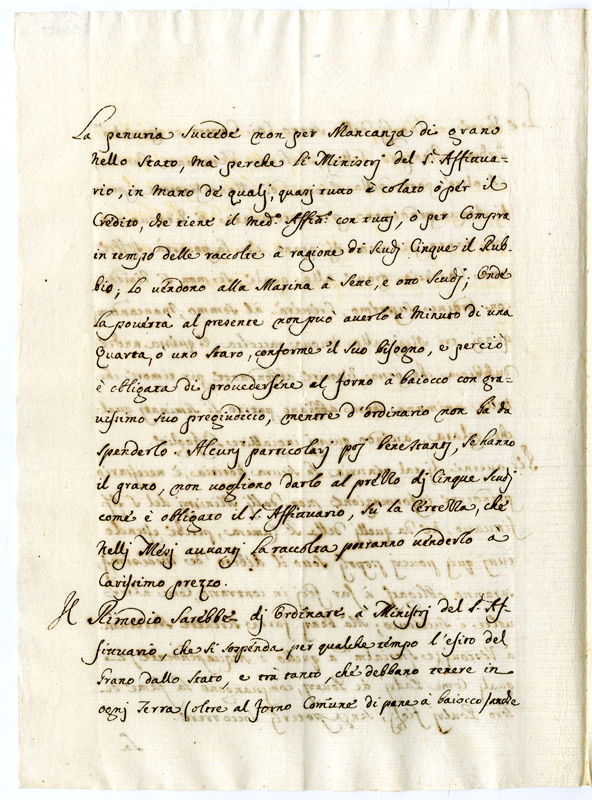 La penuria succede non per Mancanza di grano
nello stato, mà perche li Ministrj del s.r Affittua=
rio, in mano de qualj, quasj tutto è colato ò per il
Credito, che tiene il med.o Affitt.o con tuttj, ò per Compra
in tempo delle raccolte à ragione di scudj Cinque il Rub-
bio; Lo vendono alla Marina à sette, e otto scudj; onde
La povertà al presente non può averlo à Minuto di una
Quarta, ò uno staro, conforme il suo bisogno, e perciò
è obligata di provedersene al forno à baiocco con gra=
vissimo suo pregiudicio, mentre d'ordinario non hà da
spenderlo. Alcunj particolarj poj benestantj, se hanno
il grano, non vogliono darlo al prezzo dj Cinque scudj
come è obligato il s.r Affittuario, sù la Certezza, che
nellj Mesj avvantj La raccolta potranno venderlo à
Carissimo prezzo.
Il Rimedio sarebbe dj ordinare à Ministrj del s.r Af-
fittuario, che si sospenda per qualche tempo l'esito del
grano dallo stato, e trà tanto, che debbano tenere in
ognj Terra (oltre al forno Comune di pane à baiocco) anche
La